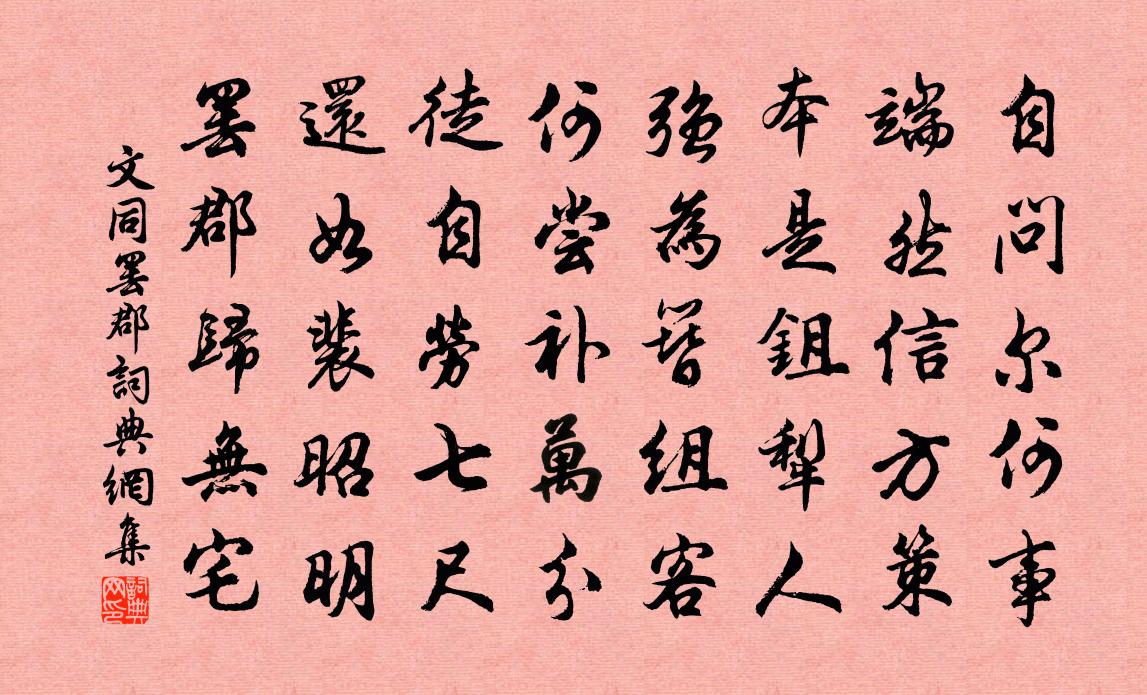 自问尔何事
端然信方策
本是鉏犁人
強為簪组客
何尝补萬分
徒自勞七尺
還如裴昭明
罢郡歸無宅
文同罢郡詞典網集
詞典网印